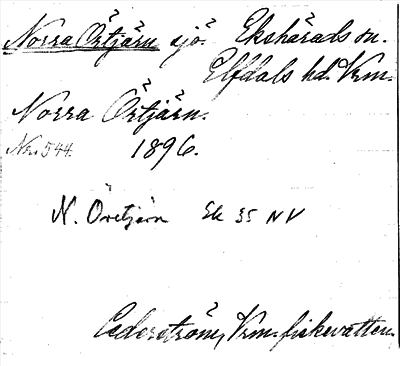 Norra Örtjärn sjö. Ekshärads sn.
Elfdals hd. Vrm.
Norra Örtjärn.
No. 544. 1896.
N. Öretjärn Ek 35 NV
Cederström, Vrm. fiskevatten.